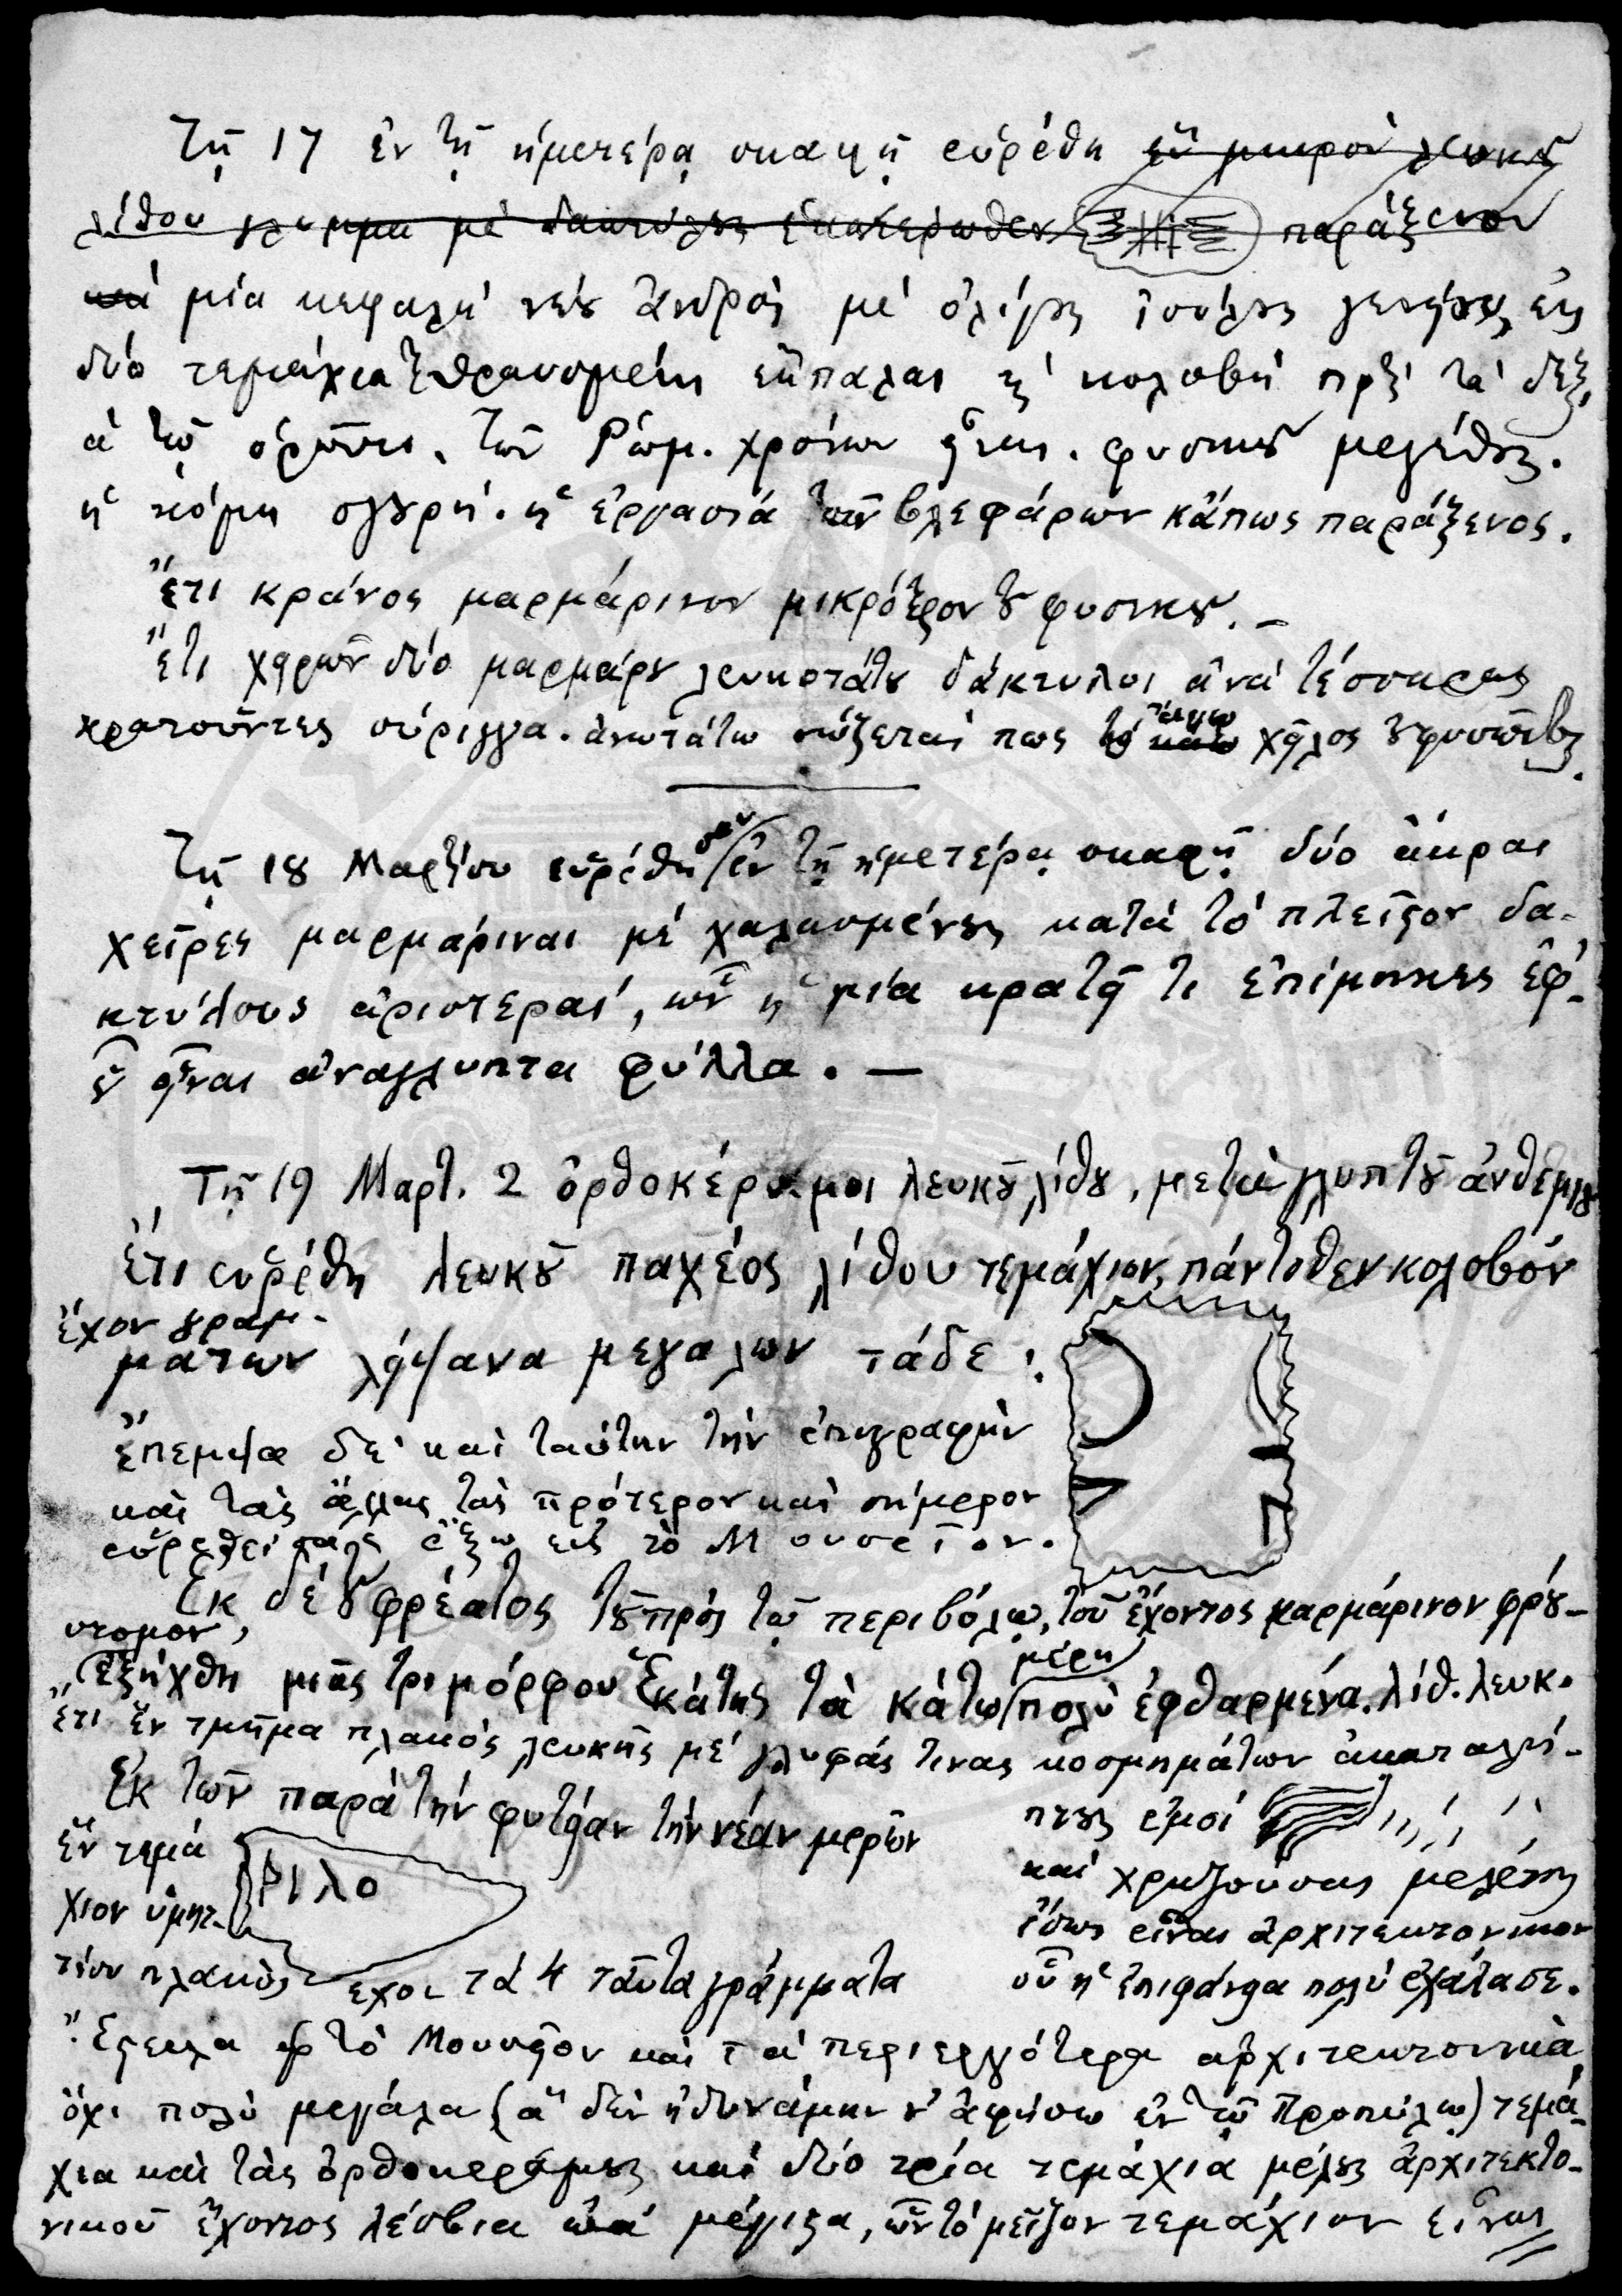 Τῇ 17 ἐν τῇ ἡμετέρᾳ σκαφῇ εὑρέθη ἓν μικρὸν λευκοῦ
λίθου γλύμμα μὲ δακτύλους ἑκατέρωθεν παράξενον
καὶ μία κεφαλὴ νέου ἀνδρὸς μὲ ὀλίγους ἰούλους γενείου, εἰς
δύο τεμάχια τεθραυσμένη ἔκπαλαι κ κολοβὴ πρὸς τὰ δεξι
ὰ τῷ ὁρῶντι. τῶν Ρωμ. χρόνων φυσικοῦ μεγέθους.
ἡ κόμη σγουρή. ἡ ἐργασία τῶν βλεφάρων κἄπως παράξενος.
Ἔτι κράνος μαρμάρινον μικρότερον τοῦ φυσικοῦ. –
Ἔτι χειρῶν δύο μαρμάρου λευκοτάτου δάκτυλοι ἀνὰ τέσσαρας
κρατοῦντες σύριγγα. ἀνωτάτω σώζεται πως τὸ κάτω χεῖλος τοῦ
Τῇ 18 Μαρτίου εὑρέθησαν ἐν τῇ ἡμετέρᾳ σκαφῇ δύο ἄκραι
χεῖρες μαρμάριναι μὲ χαλασμένους κατὰ τὸ πλεῖστον δα-
κτύλους ἀριστεραί, ὧν ἡ μία κρατεῖ τι ἐπίμηκες ἐφ'
οὗ εἶναι ἀνάγλυπτα φύλλα. –
Τῇ 19 Μαρτ. 2 ὀρθοκέραμοι λευκοῦ λίθου, μετὰ γλυπτοῦ ἀνθεμίου
Ἔτι εὑρέθη λευκοῦ παχέος λίθου τεμάχιον, πάντοθεν κολοβόν
ἔχον γραμ-
μάτων λείψανα μεγάλων τάδε:
ἔπεμψα δὲ καὶ ταύτην τὴν ἐπιγραφὴν
καὶ τὰς ἄλλας τὰς πρότερον καὶ σήμερον
εὑρεθείσας ἔξω εἰς τὸ Μουσεῖον.
Ἐκ δὲ τοῦ φρέατος τοῦ πρὸς τῷ περιβόλῳ, τοῦ ἔχοντος μαρμάρινον φρού-
στομον,
ἐξήχθη μιᾶς τριμόρφου Ἑκάτης τὰ κάτω μέρη πολὺ ἐφθαρμένα. λίθ. λευκ.
Ἔτι ἓν τμῆμα πλακὸς λευκῆς μὲ γλυφάς τινας κοσμημάτων ἀκαταλή-
πτους ἐμοί
καὶ χρῃζούσας μελέτης
ἴσως εἶναι ἀρχιτεκτονικὸν
οὗ ἡ ἐπιφάνεια πολὺ ἐχάλασε.
Ἐκ τῶν παρὰ τὴν φυτείαν τὴν νέαν μερῶν
ἓν τεμά
χιον ὑμητ-
τίου πλακὸς
ΡΙΛΟ
ἔχει τὰ 4 ταῦτα γράμματα
Ἔστειλα εἰς τὸ Μουσεῖον καὶ τὰ περιεργότερα ἀρχιτεκτονικὰ
ὄχι πολὺ μεγάλα (ἃ δὲν ἠδυνάμην ν' ἀφήσω ἐν τῷ Προπύλῳ) τεμά-
χια καὶ τὰς ὀρθοκεράμους καὶ δύο τρία τεμάχια μέλους ἀρχιτεκτο-
νικοῦ ἔχοντος λέσβια ὠὰ μέγιστα, ὧν τὸ μεῖζον τεμάχιον εἶναι